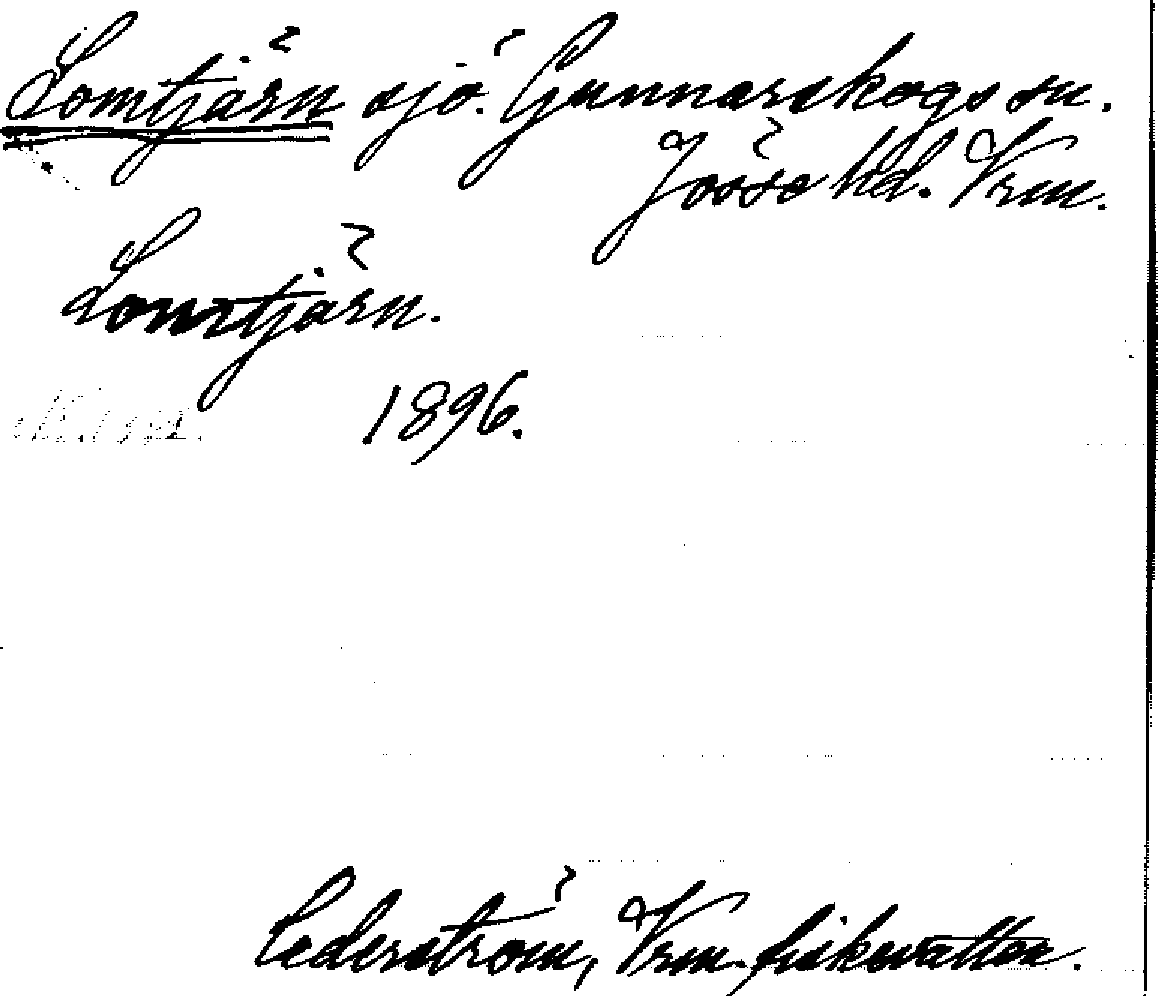 Lomtjärn sjö. Gunnarskogs sn.
Jösse hd. Vrm.
Lomtjärn.
1896.
Cederström, Vrm. fiskevatten.